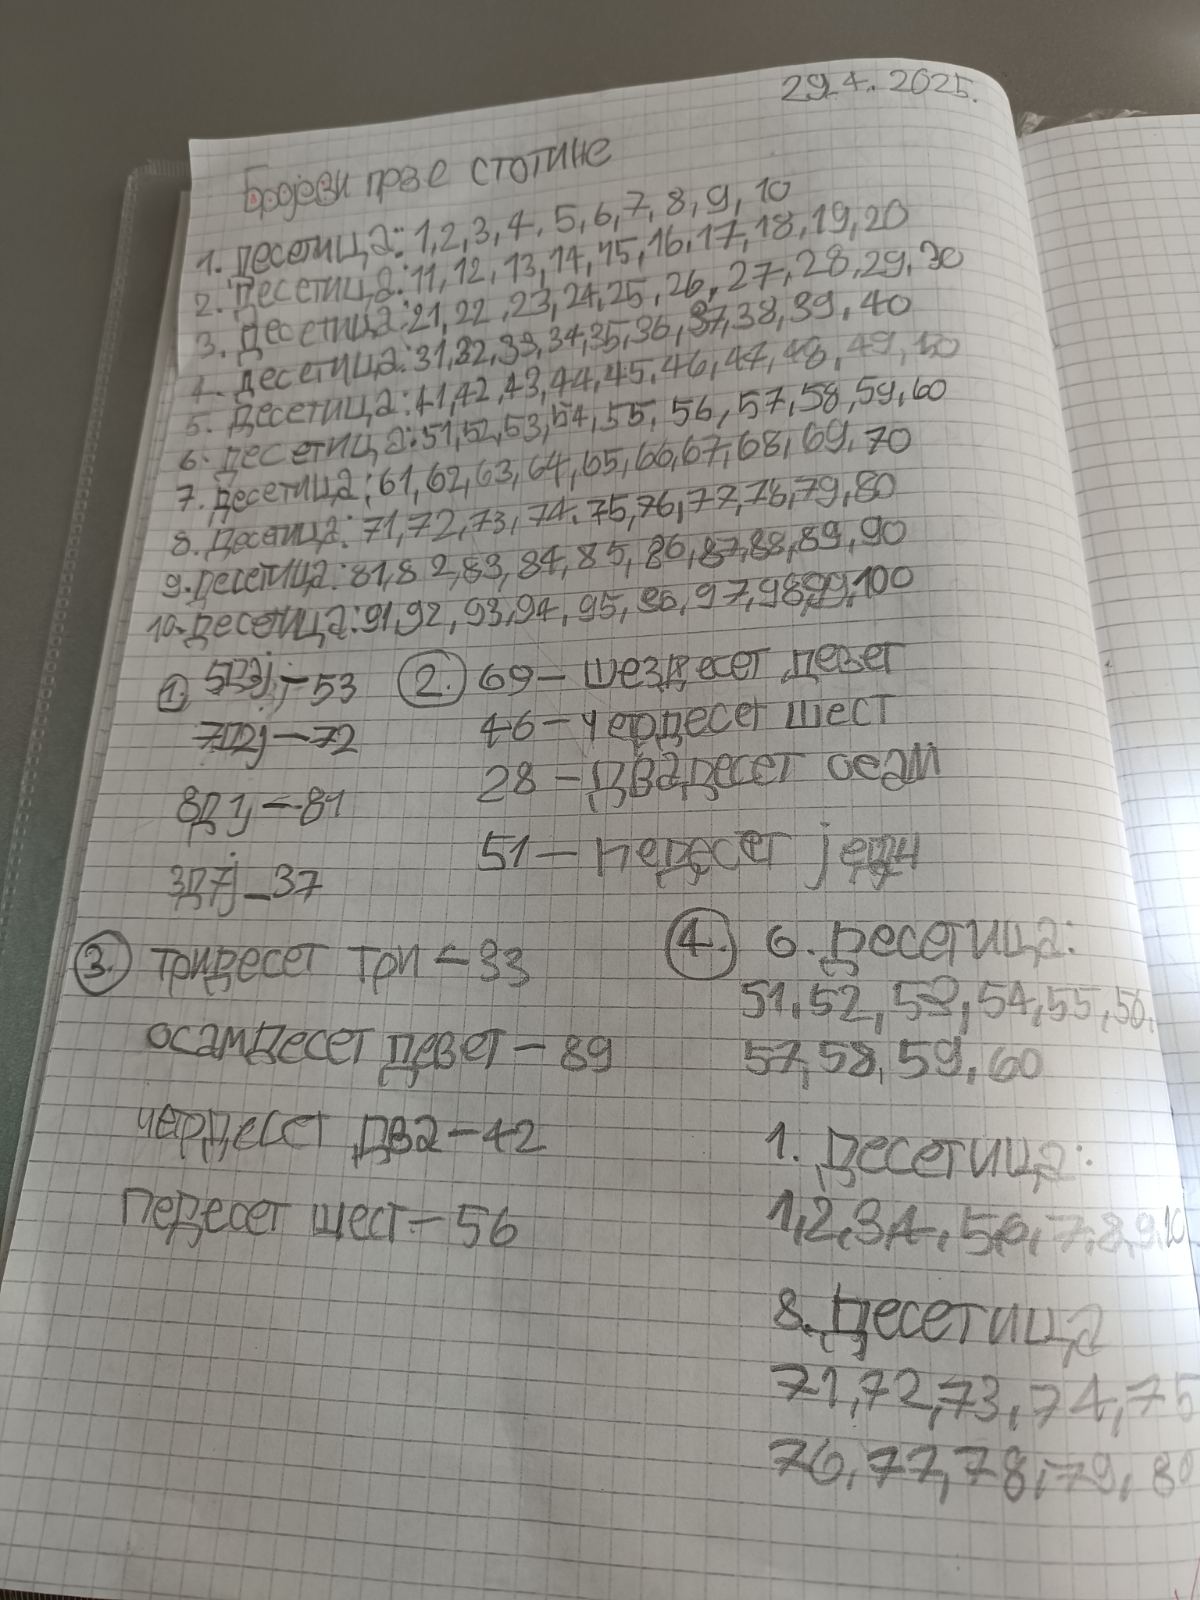 29.4.2025.
Бројеви прве стотине
1. Десетица: 1,2,3,4,5,6,7,8,9,10
2. Десетица: 11,12,13,14,15,16,17,18,19,20
3. Десетица: 21,22,23,24,25,26,27,28,29,30
4. Десетица: 31,32,33,34,35,36,37,38,39,40
5. Десетица: 41,42,43,44,45,46,47,48,49,50
6. Десетица: 51,52,53,54,55,56,57,58,59,60
7. Десетица: 61,62,63,64,65,66,67,68,69,70
8. Десетица: 71,72,73,74.75,76,77,78,79,80
9. Десетица: 81,82,83,84,85,86,87,88,89,90
10. Десетица: 91,92,93,94,95,96,97,98,99,100
1. 5Д3ј – 53
7Д2ј – 72
8Д1ј – 81
3Д7ј – 37
2. 69 – шездесет девет
46 – чердесет шест
28 – двадесет осам
51 – педесет један
3. тридесет три – 33
осамдесет девет – 89
чердесет два – 42
педесет шест – 56
4. 6. Десетица:
51,52,53,54,55,56,
57,58,59,60
1. Десетица:
1,2,3,4,5,6,7,8,9,10
8. Десетица
71,72,73,74,75
76,77,78,79,80